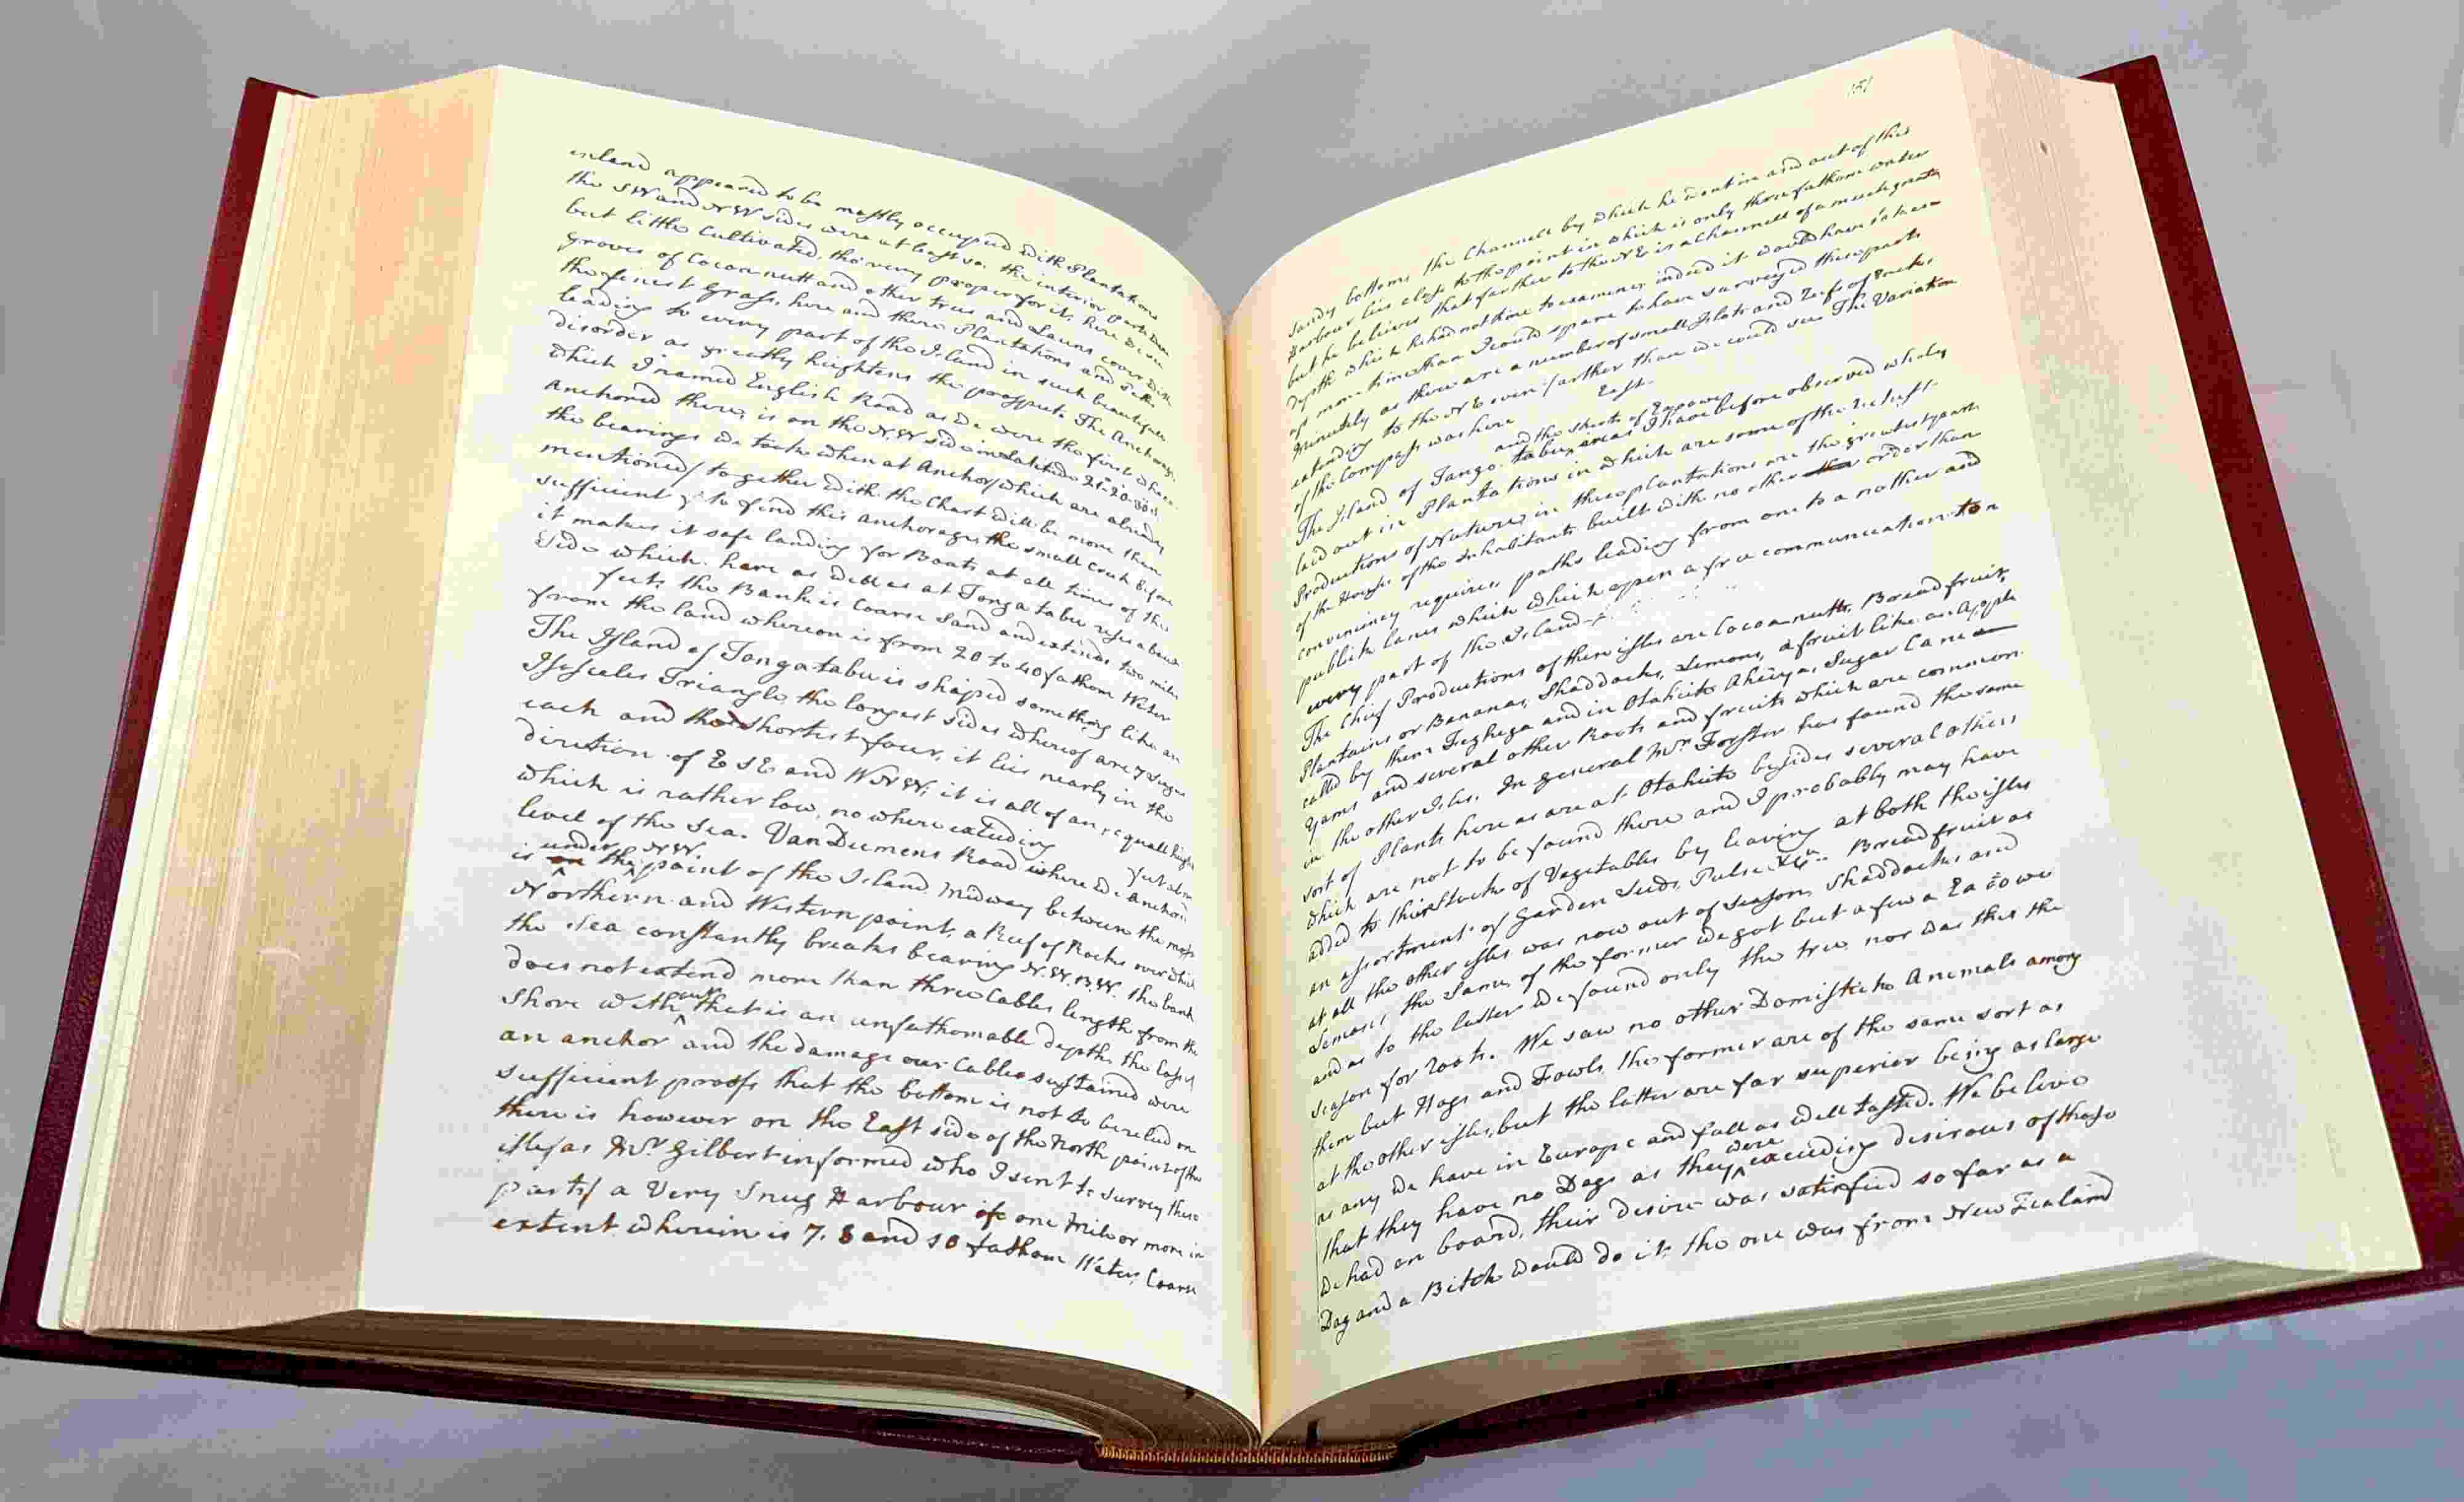 inland appeared to be mostly occupied with Plantations
the SW and NW sides were at least so. the interior parts were
but little cultivated, tho' very proper for it; here were
groves of Cocoa nutt and other trees and Lawns cover'd with
the finest grass, here and there Plantations and paths
leading to every part of the Island in such beautifull
disorder as greatly heightens the prospect. The Anchorage
which I named English Road as we were the first who
Anchored there, is on the NW side in Latitude 21°-20'-30" S
the bearings we took when at Anchor/which are already
mentioned/together with the Chart will be more then
sufficient to find this anchorage, the small creek before
it makes it safe landing for Boats at all times of the
Tide which here as well as at Tongatabu rises about
feet, the Bank is Coarse Sand and extends two miles
from the land whereon is from 20 to 40 fathom Water
The Island of Tongatabu is shaped something like an
Isosceles Triangle, the longest sides whereof are 7 Leagues
each and the shortest four, it lies nearly in the
direction of ESE and WNW; it is all of an equall height
which is rather low, no where exceeding
level of the Sea. Van Diemens Road where we Anchored
is on the point of the Island Midway between the most
under NW
Northern and Western point, a Reef of Rocks over which
the Sea constantly breaks bearing N.W.B.W. the bank
does not extend more than three Cables length from the
shore without that is an unfathomable depth, the loss of
an anchor and the damage our Cables sustained were
sufficient proofs that the bottom is not to be relied on
there is however on the East side of the North point of the
isle/as Mr Gilbert informed who I sent to survey these
parts/ a Very Snug Harbour of one Mile or more in
extent wherein is 7, 8 and 10 fathom Water, Coarse
151
Sandy bottom. the Channell by which he went in and out of this
Harbour lies close to the point in which is only three fathom water
but he believes that farther to the NE is a Channell of a much greater
depth which he had not time to examine, indeed it would have taken
up more time than I could spare to have surveyed these parts
Minutely as there are a number of small Islots and Reefs of Rocks
extending to the NE even farther than we could see. The Variation
of the Compass was here East.
and the skirts of Eaoowe
The Island of Tonga-tabu, was I have before observed wholy
laid out in Plantations in which are some of the richest
Productions of Nature, in these plantations are the greatest part
of the Houses of the Inhabitants built with no other order than
conveniency requires, paths leading from one to a nother and
publick lanes which which open a free communication to
every part of the Island.
The Chief Productions of these isles are Cocoa nutts, Bread fruit,
Plantains or Bananas, Shaddocks, Lemons, a fruit like an Apple
called by them Feghega and in Otahiete Aheiya, Sugar Cane
Yams and several other Roots and fruits which are common
in the other Isles. In general Mr Forster has found the same
sort of Plants here as are at Otahiete besides several others
which are not to be found there and I probably may have
added to their Stock of Vegetables by leaving at both the isles
an assortment of Garden Seeds, Pulse &ca. Bread fruit as
at all the other isles was now out of season, Shaddocks and
Lemons, the same, of the former we got but a few a Eaoowe
and as to the latter we found only the tree, nor was this the
season for roots. We saw no other Domistick Animals among
them but Hogs and Fowls, the former are of the same sort as
at the other isles, but the latter are far superior being as large
as any we have in Europe and full as well tasted. We believe
that they have no Dogs as they were exceeding desirous of those
we had on board, their desire was satisfied so far as a
Dog and a Bitch would do it, the one was from New Zealand